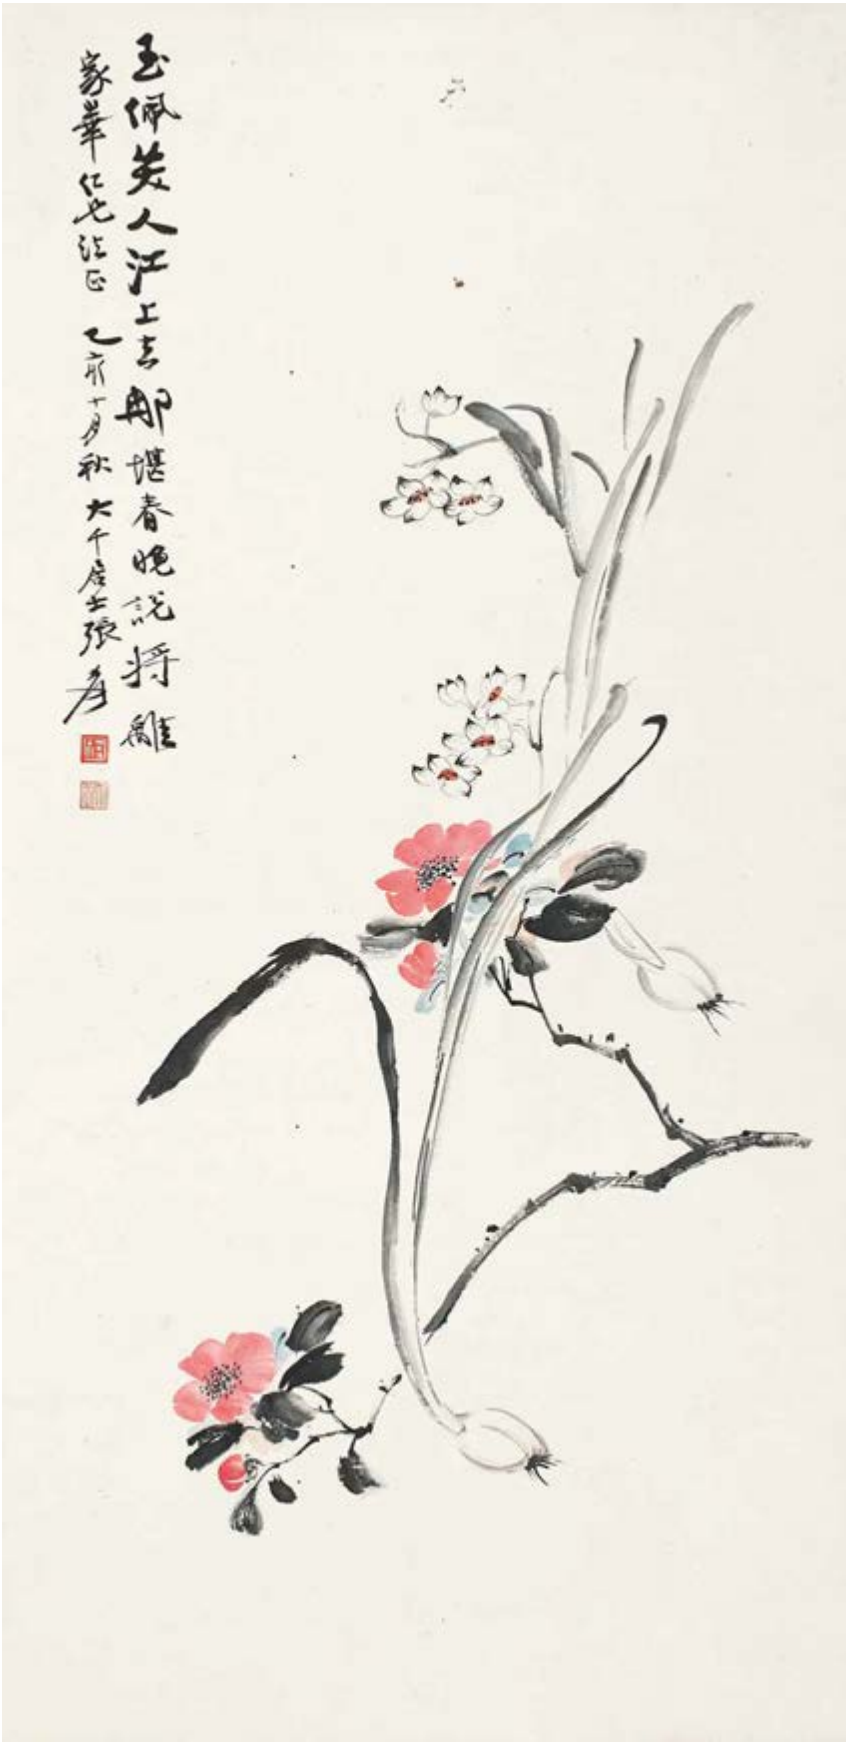 玉佩美人江上去那堪春晚說將離
家華仁兄法正 乙亥十月秋 大千居士張爰